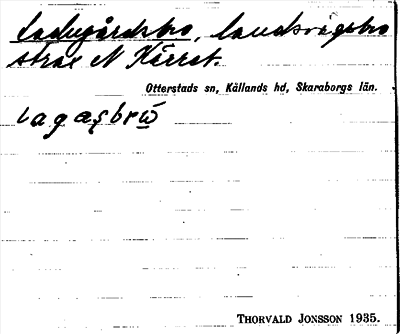 Ladugårdsbro, landsvägsbro
strax N Kärret.
Otterstads sn, Kållands hd, Skaraborgs län.
lagasbrω̲
THORVALD JONSSON 1935.